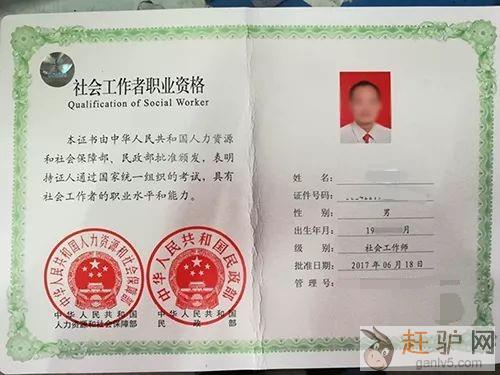 社会工作者职业资格
Qualification of Social Worker
本证书由中华人民共和国人力资源
和社会保障部、民政部批准颁发，表明
持证人通过国家统一组织的考试，具有
社会工作者的职业水平和能力。
中华人民共和国人力资源和社会保障部
中华人民共和国民政部
中华人民共和国
人力资源和社会保障部
中华人民共和国
民政部
姓名：
证件号码：
性别： 男
出生年月： 19 月
级别： 社会工作师
批准日期： 2017 年 06 月 18 日
管理号：
赶驴网
ganlv5.com